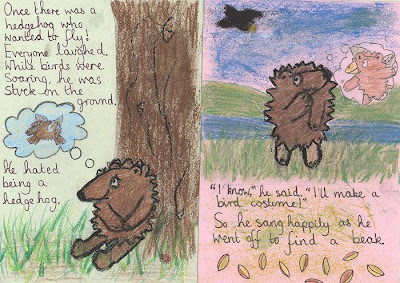 Once there was a
hedgehog who
wanted to fly!
Everyone laughed.
While birds were
Soaring, he was
stuck on the
ground.
He hated
being a
hedgehog.
"I know," he said, "I'll make a
bird costume!"
So he sang happily as he
went off to find a beak